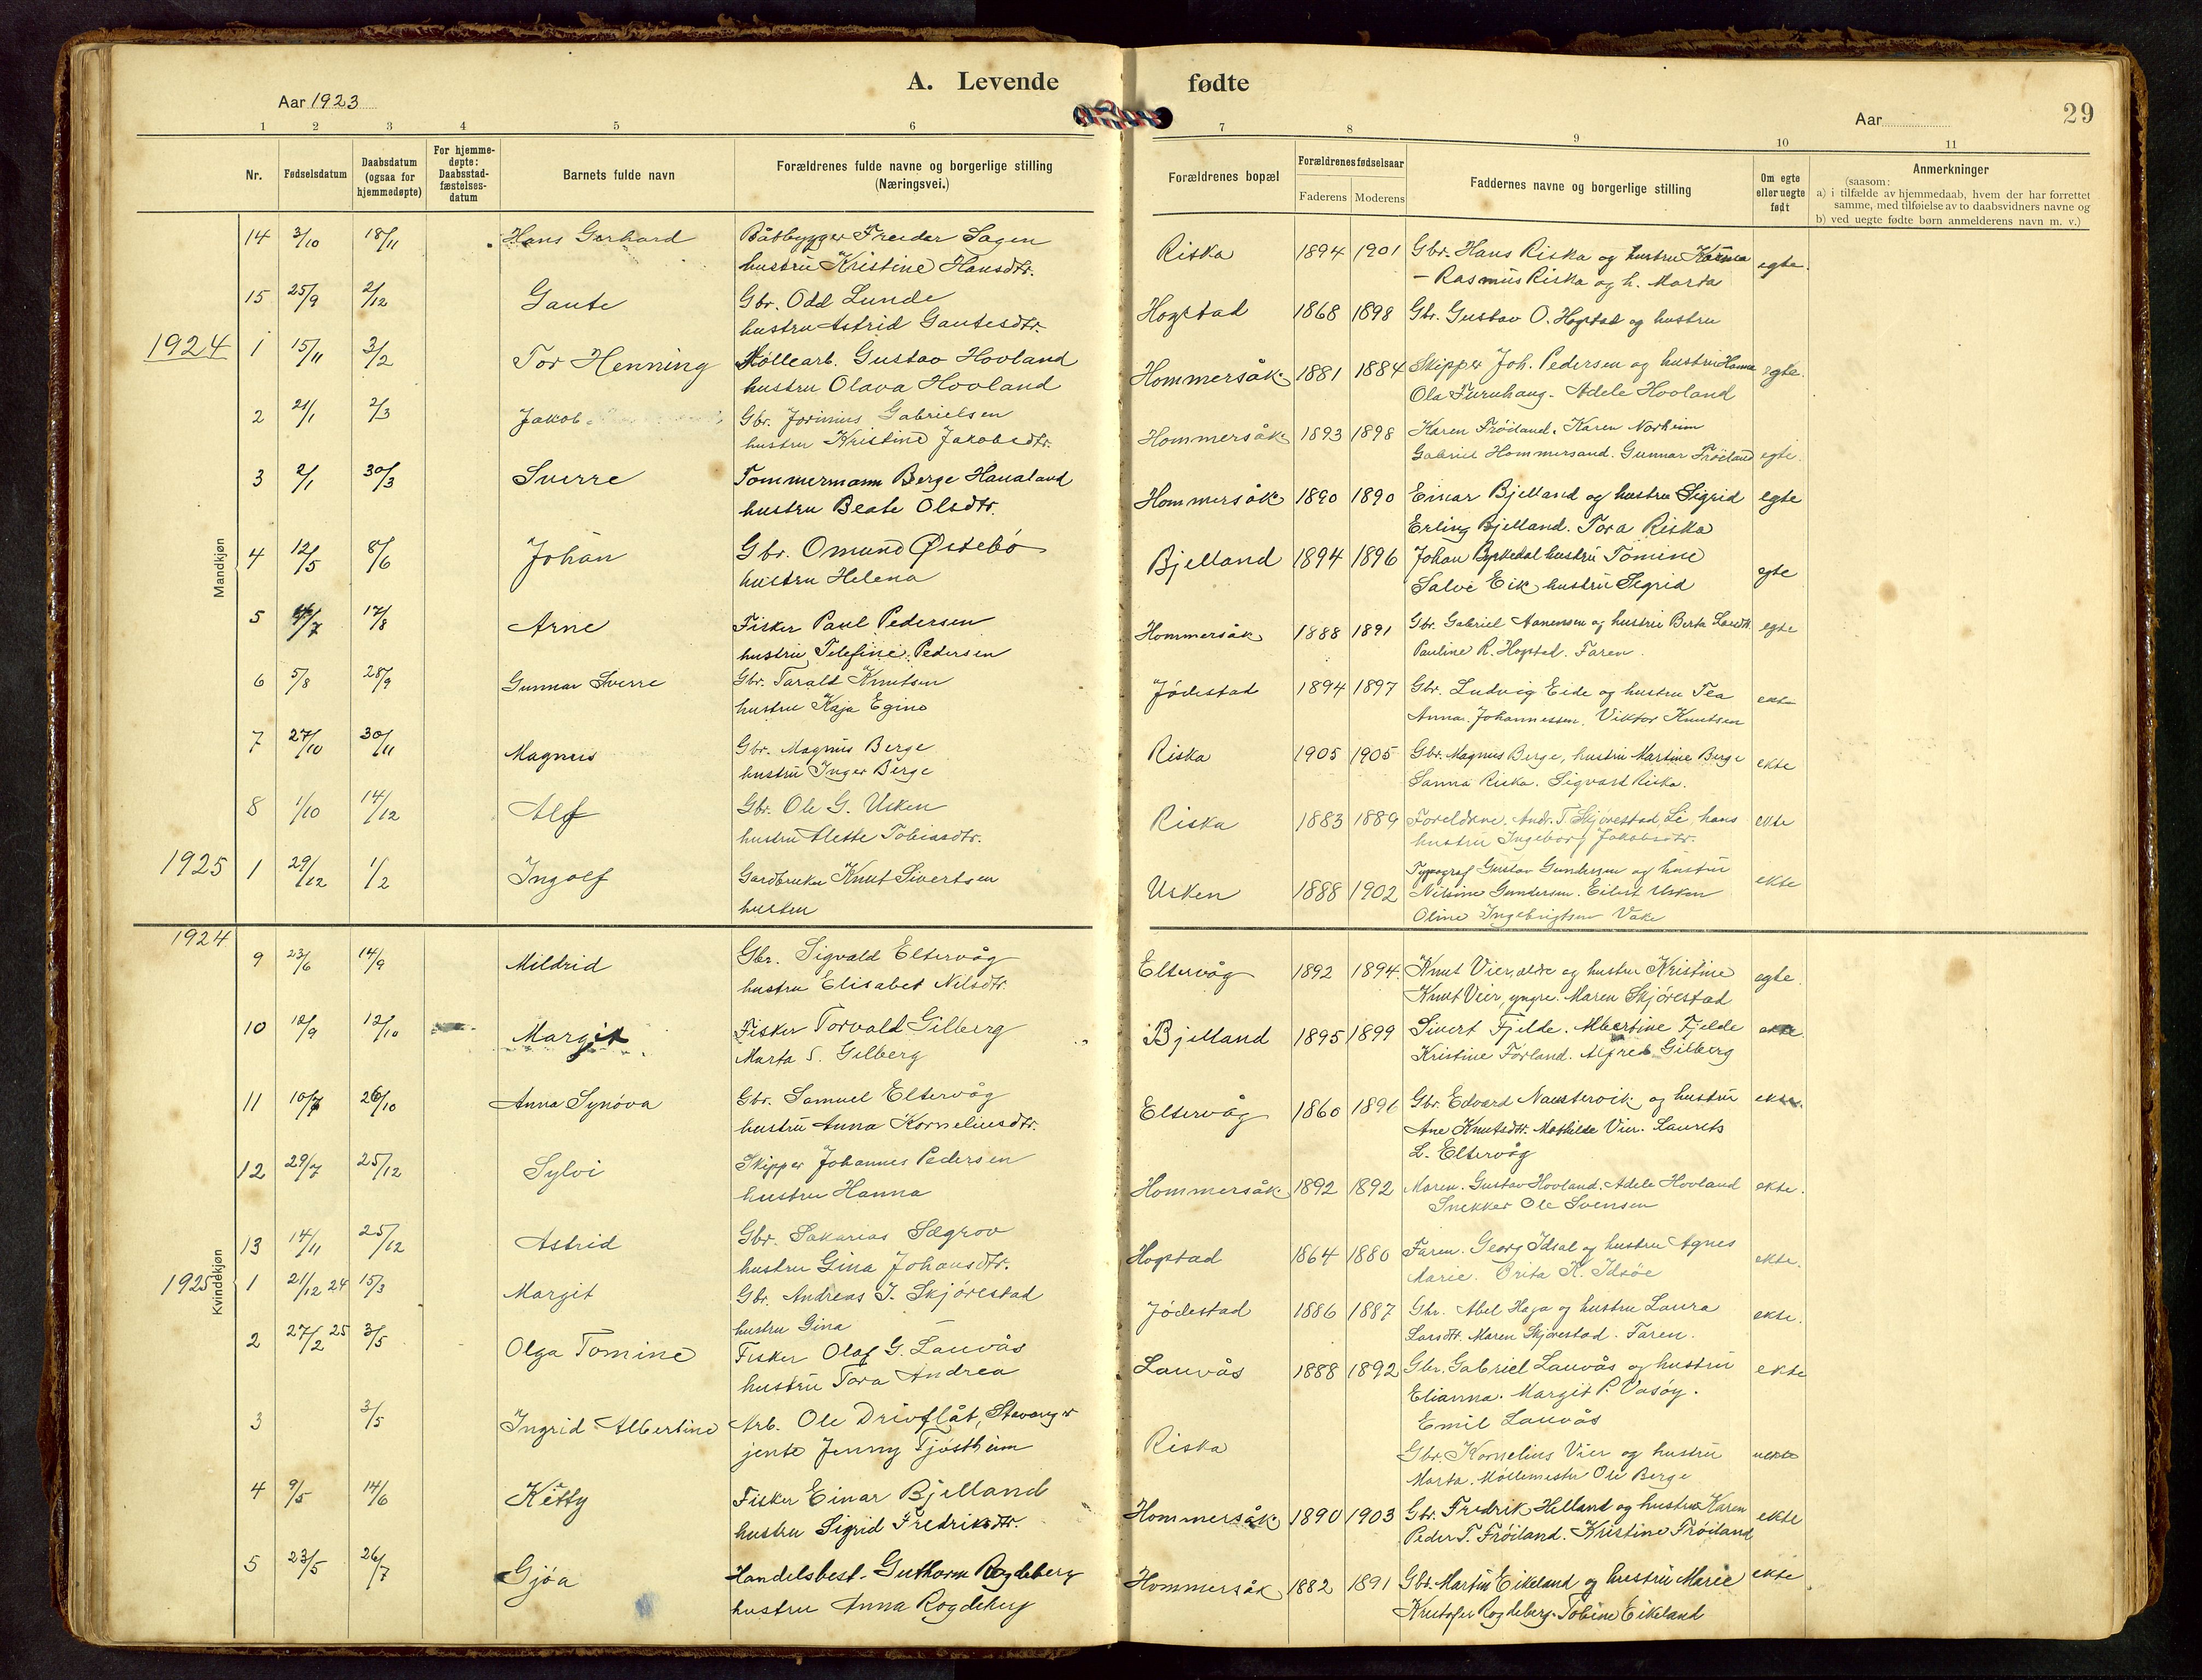 A. Levende fødte
Aar 1923
Aar
29
1 2 3 4 5 6 7 8 9 10 11
Nr.
Fødselsdatum
Daabsdatum
(ogsaa for
hjemmedøpte)
For hjemme-
døpte:
Daabsstad-
fæstelses-
datum
Barnets fulde navn
Forældrenes fulde navne og borgerlige stilling
(Næringsvei.)
Forældrenes bopæl
Forældrenes fødselsaar
Faderens Moderens
Faddernes navne og borgerlige stilling
Om egte
eller uegte
født
Anmerkninger
(saasom:
a) i tilfælde av hjemmedaab, hvem der har forrettet
samme, med tilføielse av to daabsvidners navne og
b) ved uegte fødte børn anmelderens navn m. v.)
Mandkjøn
14 3/10 18/11 Hans Gerhard Båtbygger Freidar Sagen Riska 1894 1901 Gbr. Hans Riska og hustru egte.
hustru Kristine Hansdtr. – Rasmus Riska og h. Marta
15 25/9 2/12 Gaute Gbr. Odd Lunde Hogstad 1868 1898 Gbr. Gustav O. Hogstad og hustru
hustru Astrid Gautesdtr.
1924 1 15/11 3/2 Tor Henning Møllearb. Gustav Hovland Hommersåk 1881 1884 Skipper Joh. Pedersen og hustru Hanna egte.
hustru Olava Hovland Ola Furuhaug. Adele Hovland
2 21/1 2/3 Jakob Gbr. Gabrielsen Hommersåk 1893 1898 Karen Frøiland. Karen Norheim
hustru Kristine Jakobsdtr. Gabriel Hommersand. Gunnar Frøiland egte.
3 2/1 30/3 Sverre Tømmermann Berge Haualand Hommersåk 1890 1890 Einar Bjelland og hustru Sigrid egte
hustru Beate Olsdtr. Erling Bjelland. Tora Riska
4 12/5 8/6 Johan Gbr. Omund Østebö Bjelland 1894 1896 Johan Byrkedal hustru Tomine
hustru Helena Salve Eik hustru Sigrid egte
5 17/8 Arne Fisker Paul Pedersen Hommersåk 1888 1891 Gbr. Gabriel Aanensen og hustru Berta Larsdtr. egte
hustru Telefine Pedersen Pauline R. Hogstad. Faren.
6 5/8 28/9 Gunnar Sverre Gbr. Tarald Knutsen Jödestad 1894 1897 Gbr. Ludvig Eide og hustru Tea ekte
hustru Kaja Egino Anna Johannessen. Viktor Knutsen
7 27/10 30/11 Magnus Gbr. Magnus Berge Riska 1905 1905 Gbr. Magnus Berge, hustru Martine Berge ekte
hustru Inger Berge Sanna Riska. Sigvart Riska.
8 1/10 14/12 Alf Gbr. Ole G. Usken Riska 1883 1889 Foreldrene. Andr. T. Skjörestad, Li, hans ekte
hustru Alette Tobiasdtr. hustru Ingeborg Jakobsdtr.
1925 1 29/12 1/2 Ingolf Gardbruker Knut Sivertsen Usken 1888 1902 Typograf Gustav Gundersen og hustru ekte
hustru Nilsine Gundersen. Eilert Usken
Oline Ingebrigtsen Vake
Kvindekjøn
1924
9 23/6 14/9 Mildrid Gbr. Sigvald Eltervåg Eltervåg 1892 1894 Knut Vier, eldre og hustru Kristine egte.
hustru Elisabet Nilsdtr. Knut Vier, yngre. Maren Skjörestad
10 12/10 Margit Fisker Torvald Gilberg Bjelland 1895 1899 Sivert Fjelde. Albertine Fjelde ekte.
Marta S. Gilberg Kristine Forland. Alfred Gilberg
11 10/7 26/10 Anna Synöva Gbr. Samuel Eltervåg Eltervåg 1860 1896 Gbr. Edvard Naustervik og hustru ekte.
hustru Anna Korneliusdtr. Ane Knutsdtr. Mathilde Vier. Laurits
L. Eltervåg
12 29/7 25/12 Sylvi Skipper Johannes Pedersen Hommersåk 1892 1892 Maren. Gustav Hovland. Adele Hovland ekte.
hustru Hanna Snekker Ole Svensen
13 14/11 25/12 Astrid Gbr. Sakarias Sægrov Hogstad 1864 1880 Faren. Georg Idsal og hustru Agnes ekte.
hustru Gina Johansdtr. Marie. Brita K. Idsöe
1925 1 21/12 24 15/3 Margit Gbr. Andreas J. Skjörestad Jödestad 1886 1887 Gbr. Abel Haga og hustru Laura ekte.
hustru Gina Larsdtr. Maren Skjörestad. Faren.
2 27/2 25 3/5 Olga Tomine Fisker Olaf G. Lauvås Lauvås 1888 1892 Gbr. Gabriel Lauvås og hustru ekte
hustru Tora Andrea Elianna. Margit P. Vasöy.
Emil Lauvås
3 3/5 Ingrid Albertine Arb. Ole Drivflåt, Stavanger Riska Gbr. Kornelius Vier og hustru uekte
jente Jenny Tjöstheim Marta. Möllemester Ole Berge
4 9/5 14/6 Ketty Fisker Einar Bjelland Hommersåk 1890 1903 Gbr. Fredrik Helland og hustru Karen ekte
hustru Sigrid Fredriksdtr. Peder T. Fröiland. Kristine Fröiland
5 23/5 26/7 Gjöa Handelsbest. Guthorm Rogdeberg Hommersåk 1882 1891 Gbr. Martin Eikeland og hustru Marie ekte
hustru Anna Rogdeberg Kristofer Rogdeberg. Tobine Eikeland